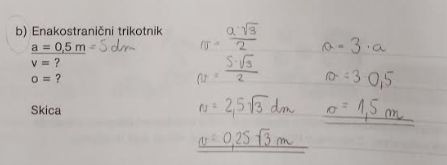 b) Enakostranični trikotnik
a = 0,5 m = 5 dm
v = ?
o = ?
Skica
v = a·√3/2
v = 5·√3/2
v = 2,5√3 dm
v = 0,25√3 m
o = 3·a
o = 3·0,5
o = 1,5 m